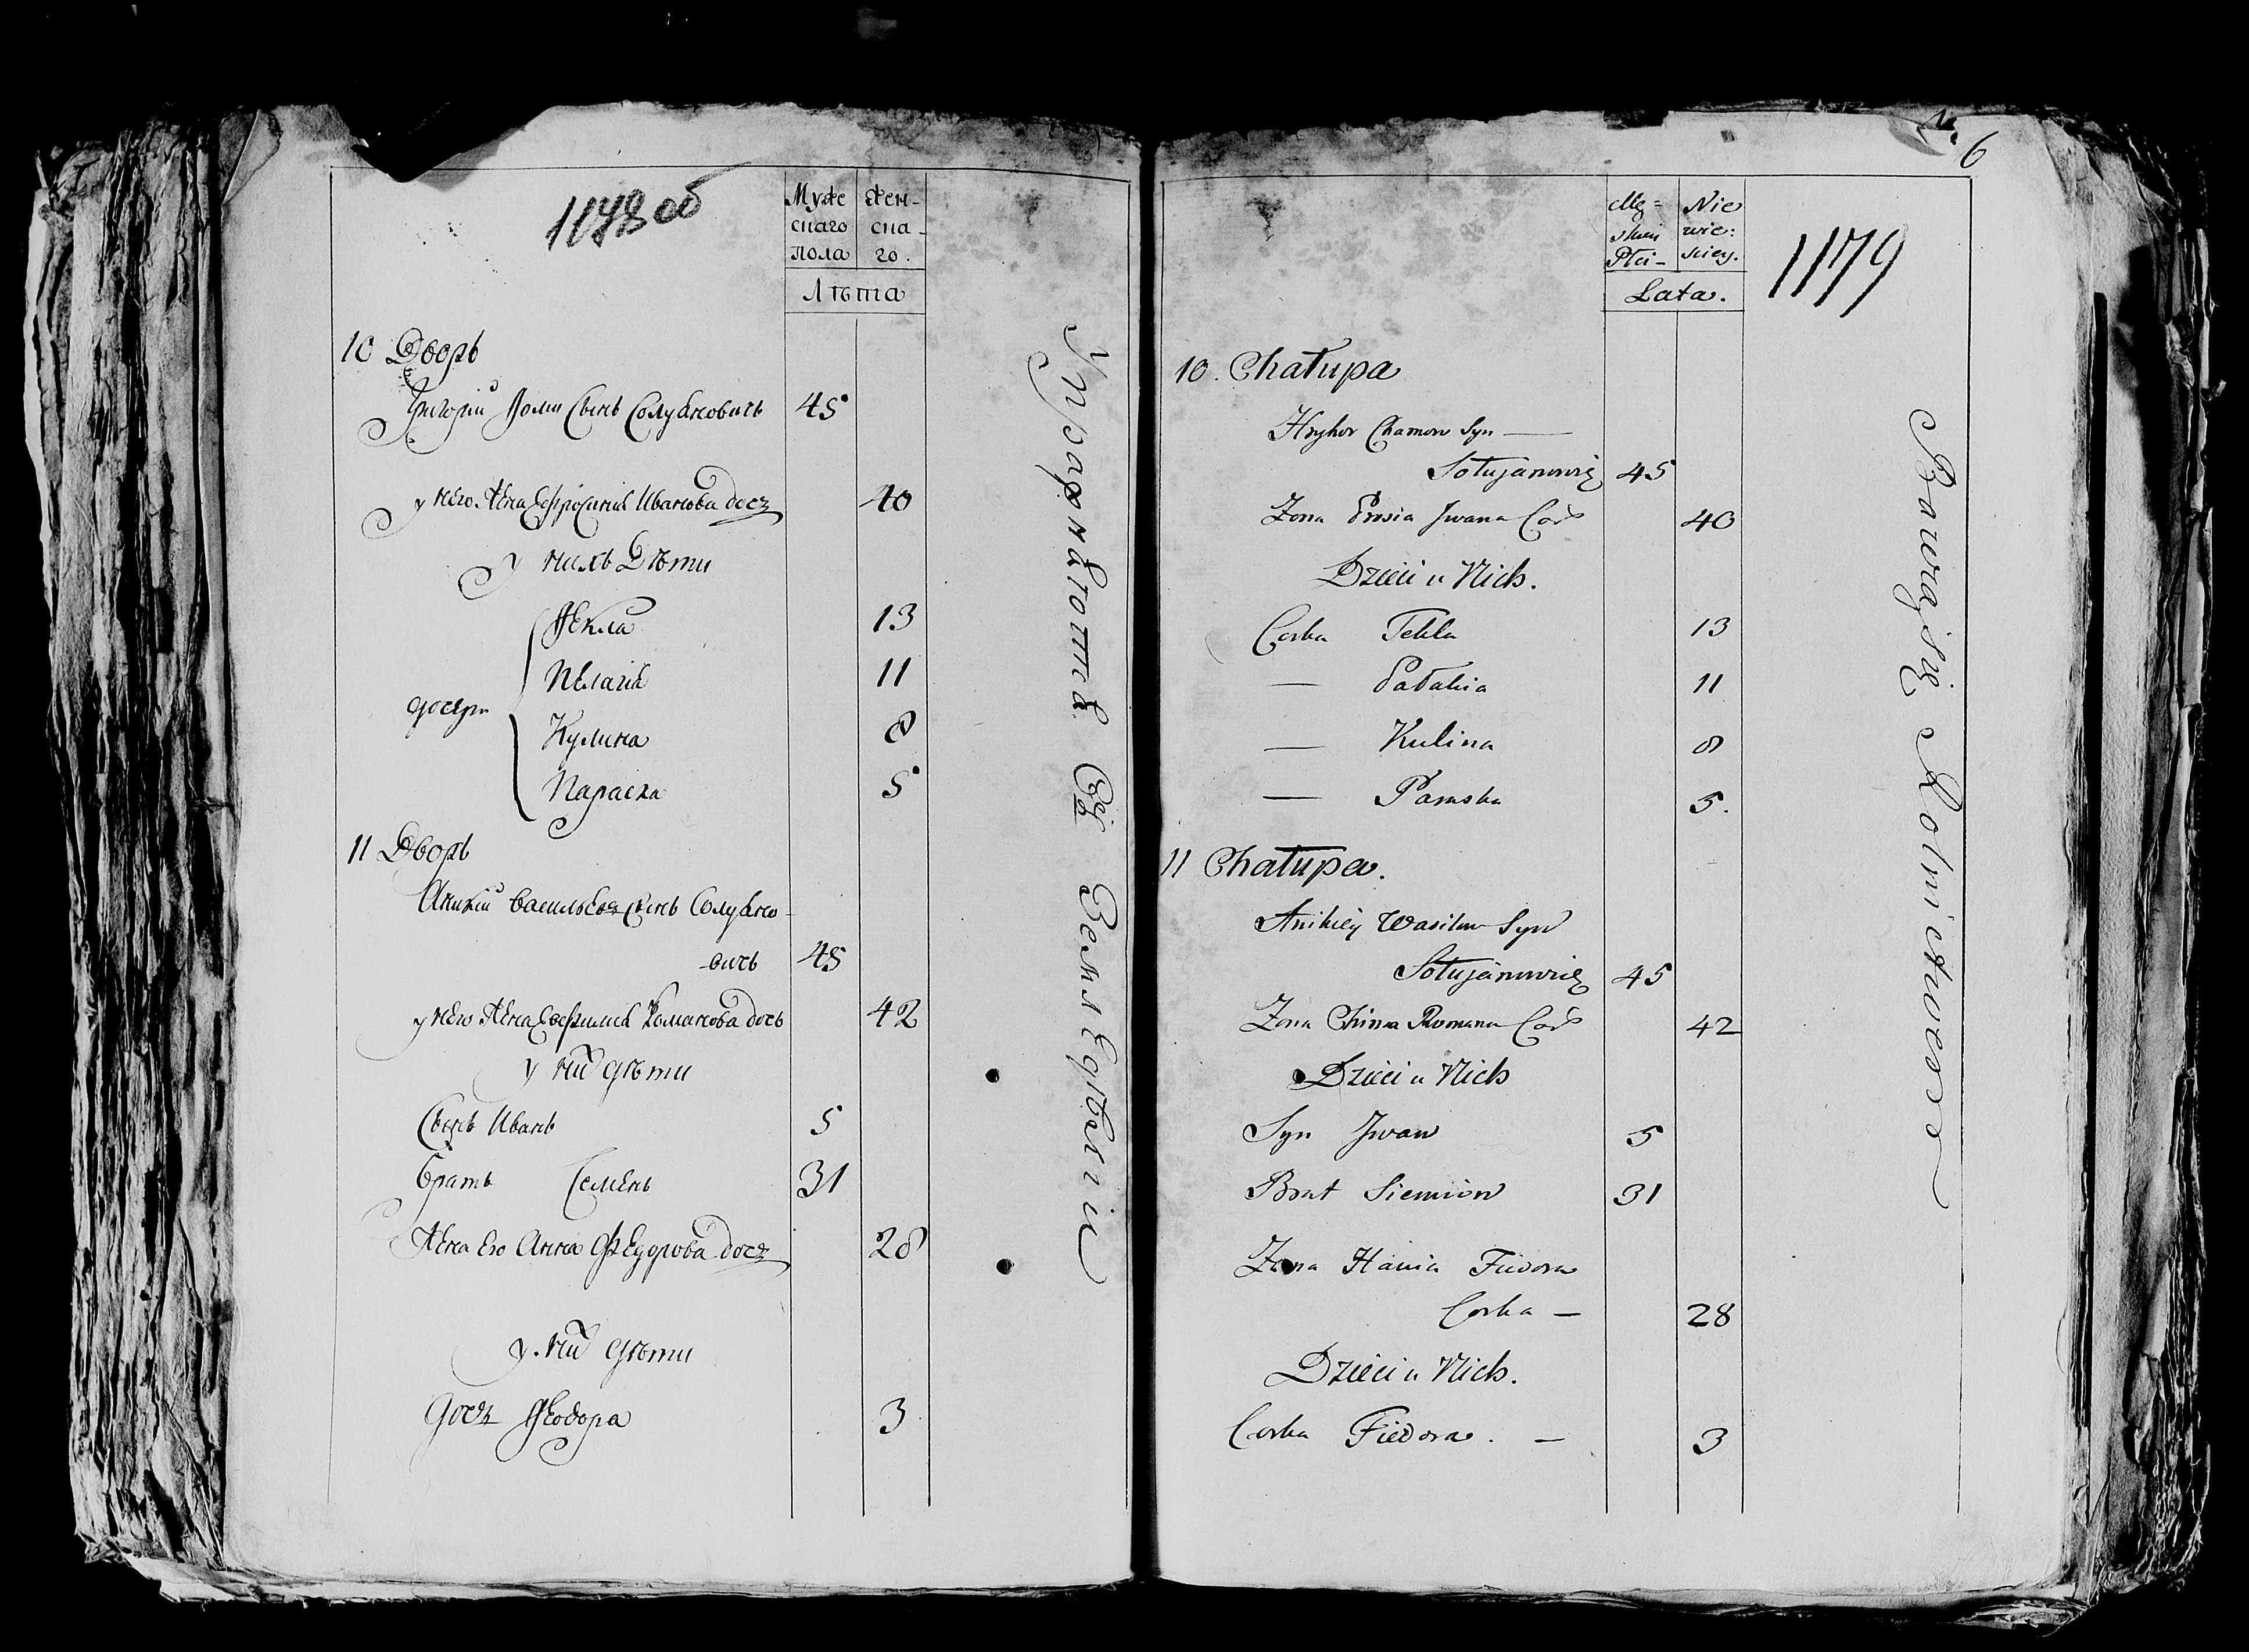 1178 об
Муже
скаго
Пола
Жен-
ска-
го.
Лѣта
10 Дворъ
Григорій Хомы Сынъ Солуяновичъ 45
у него Жена Ефросинія Иванова дочь 40
у нихъ Дѣти
дочери
Фекла 13
Пелагія 11
Кулина 8
Параска 5
11 Дворъ
Аникій Васильевъ Сынъ Солуяно-
-вичъ 45
у него Жена Евфимія Романова дочь 42
у ниⷯ дѣти
Сынъ Иванъ 5
братъ Семенъ 31
Жена Его Анна Федорова дочь 28
у ниⷯ дѣти
дочь Феодора 3
Упражняются въ Земледѣліи
6
1179
Mę=
skiey
Płci-
Nie
wie:
sciey.
Lata.
10. Chałupa
Hryhor Chamow Syn —
Sołujanowicz 45
Zona Prosia Jwana Cor 40
Dzieci u Nich.
Corka Tekla 13
— Pałahia 11
— Kulina 8
— Paraska 5.
11 Chałupa.
Anikiey Wasilow Syn
Sołujanowicz 45
Zona Chima Romana Cor 42
Dzieci u Nich
Syn Jwan 5
Brat Siemion 31
Zona Hania Fiedora
Corka — 28
Dzieci u Nich.
Corka Fiedora. — 3
Bawią się Rolnictwem